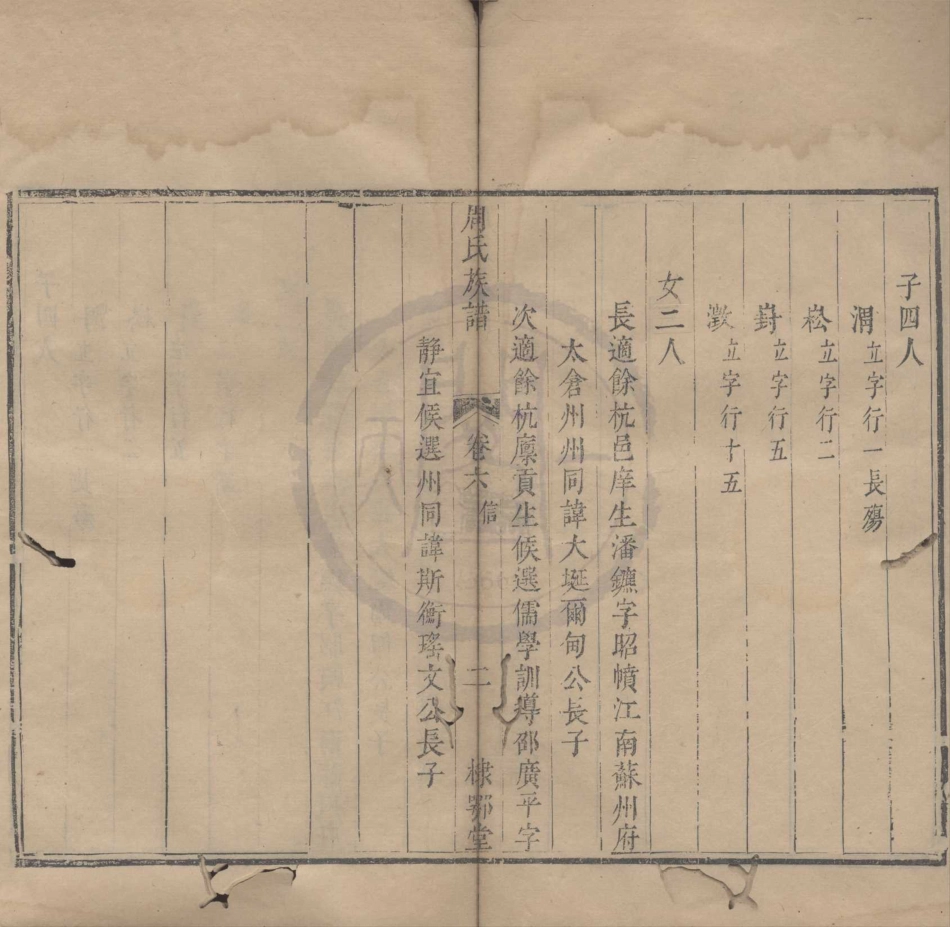 子四人
渭 立字行一長殤
崧 立字行二
崶 立字行五
澂 立字行十五
女二人
長適餘杭邑庠生潘鑣字昭幘江南蘇州府
太倉州州同諱大埏爾甸公長子
次適餘杭廪貢生候選儒學訓導邵廣平字
周氏族譜 卷六 信 二 棣鄂堂
靜宜候選州同諱斯衡瑤文公長子